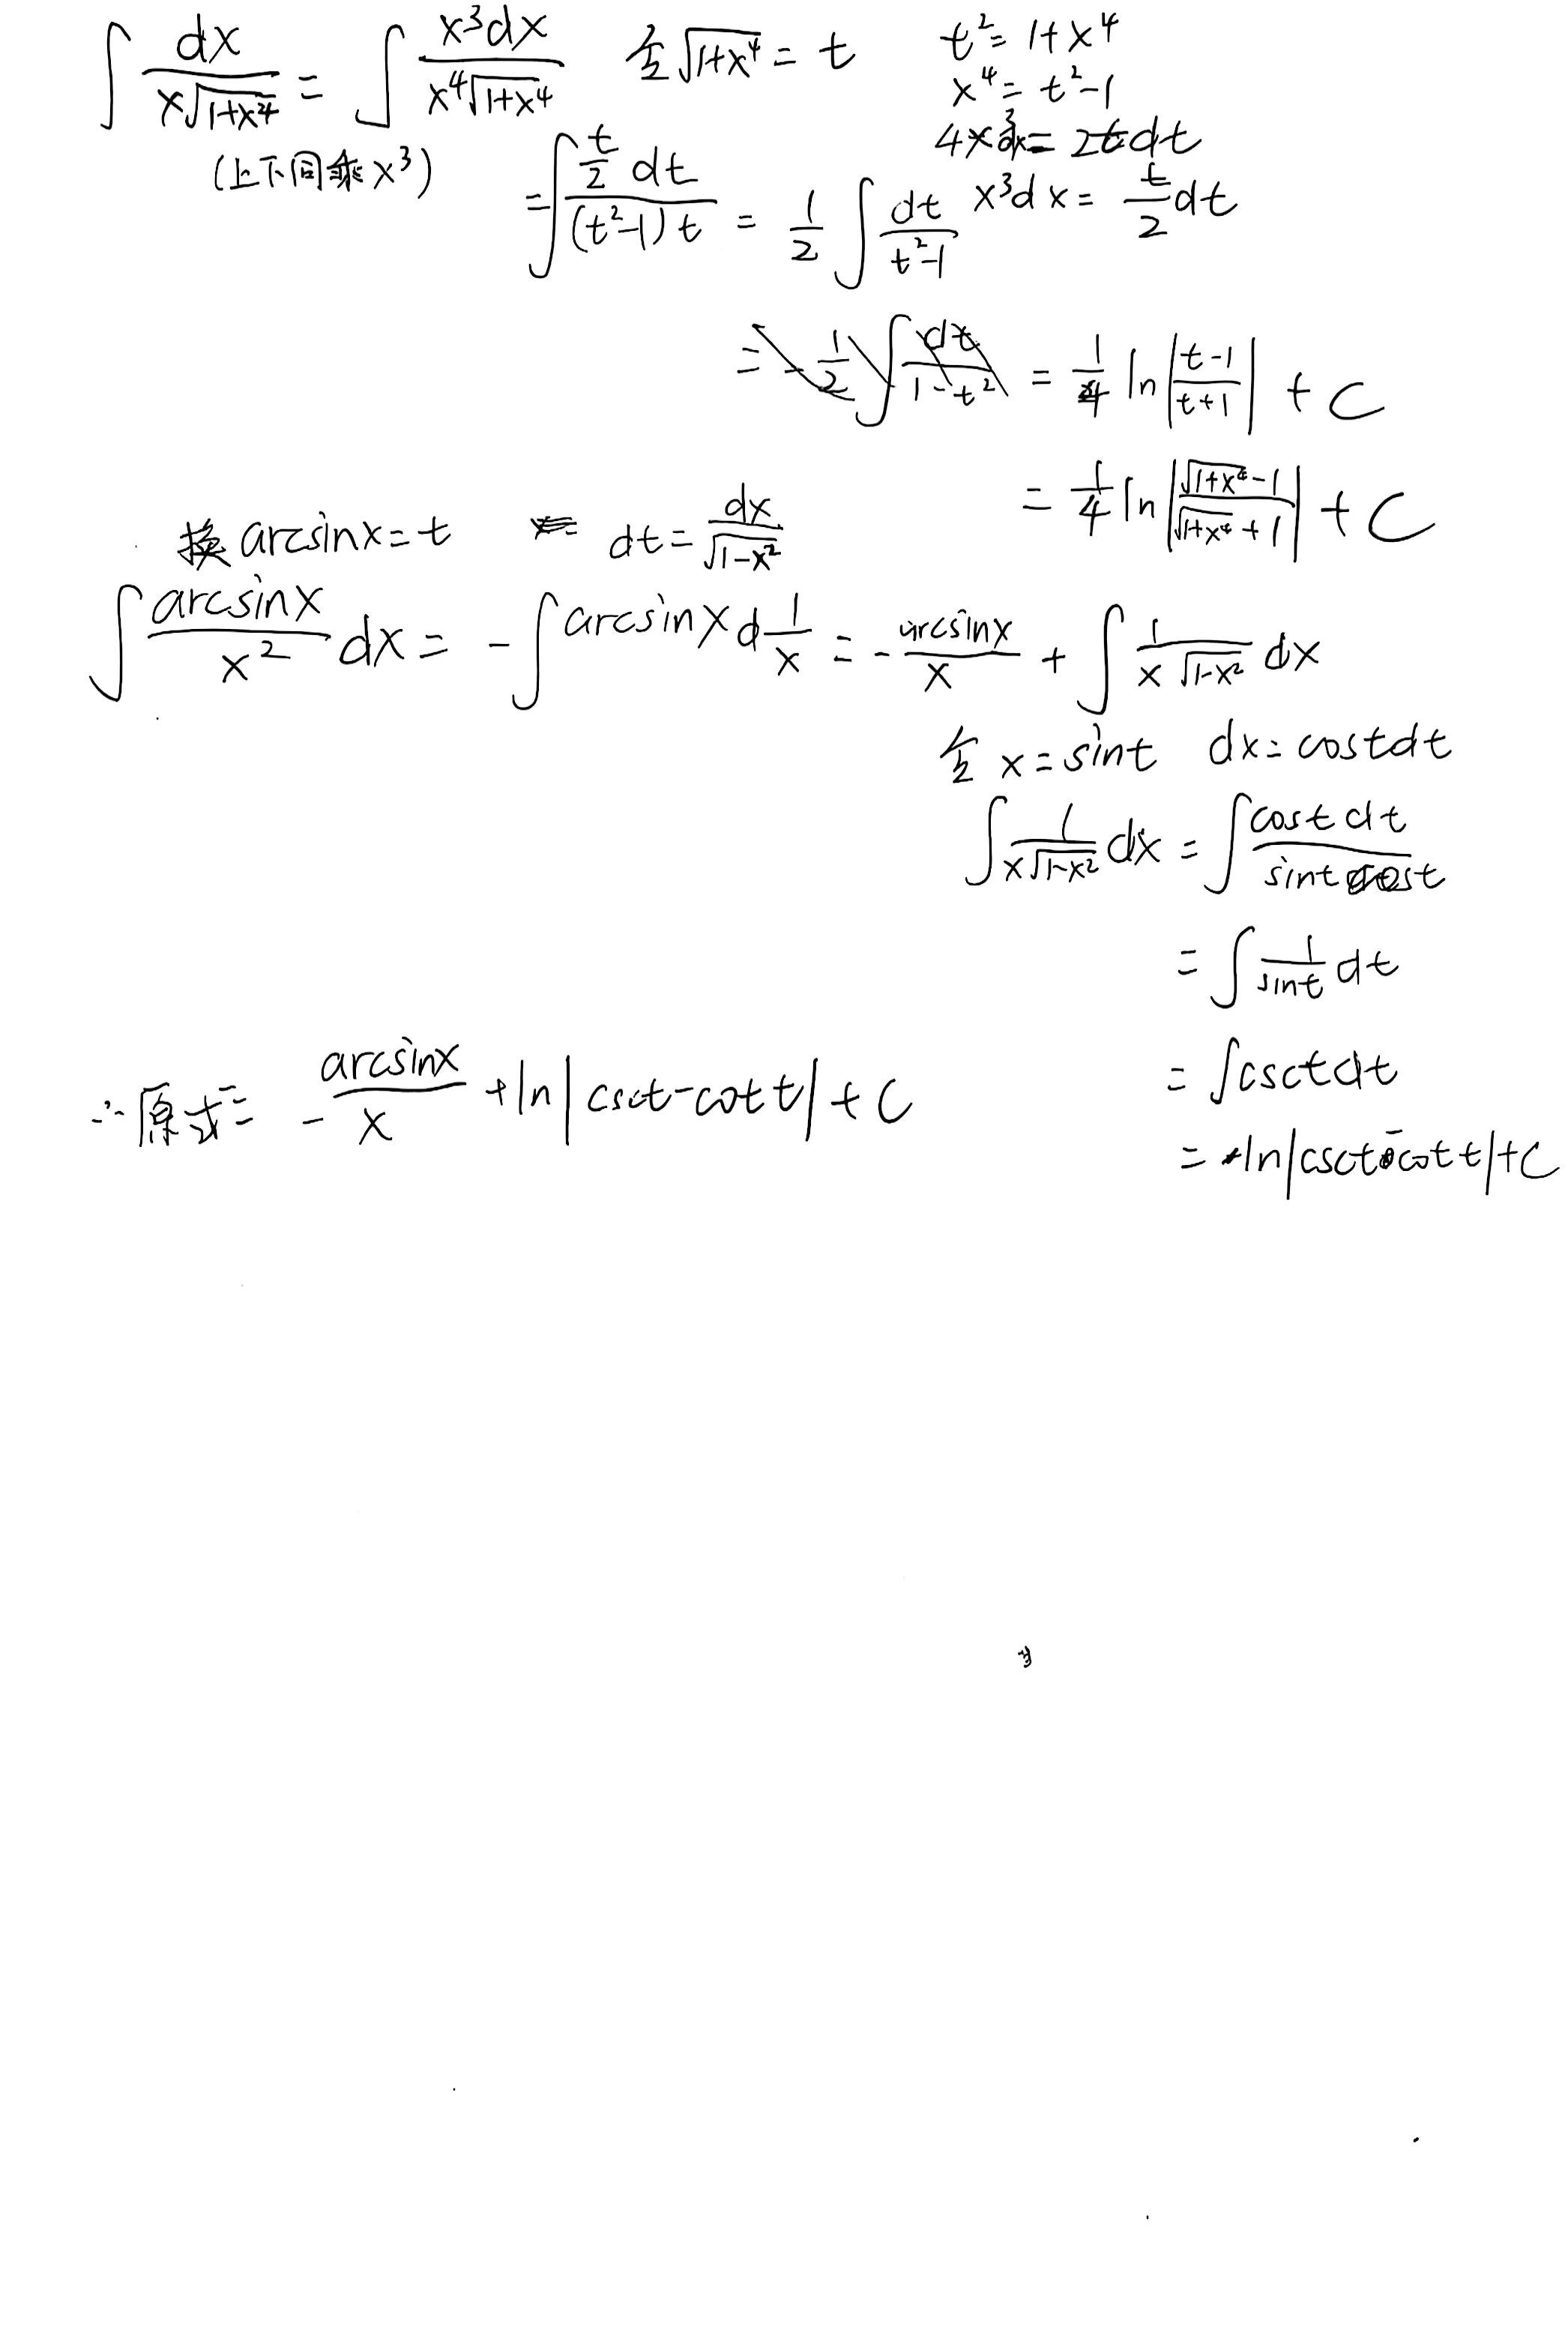 ∫ dx/(x√(1+x⁴)) = ∫ x³dx/(x⁴√(1+x⁴)) 令 √(1+x⁴) = t t² = 1+x⁴
x⁴ = t²-1
(上下同乘x³) 4x³dx = 2tdt
= ∫ (t/2 dt)/((t²-1)t) = 1/2 ∫ dt/(t²-1) x³dx = t/2 dt
= -1/2 ∫ dt/(1-t²) = 1/4 ln|(t-1)/(t+1)| + C
= 1/4 ln|(√(1+x⁴)-1)/(√(1+x⁴)+1)| + C
换 arcsinx=t dt = dx/√(1-x²)
∫ arcsinx/x² dx = -∫ arcsinx d 1/x = - arcsinx/x + ∫ 1/(x√(1-x²)) dx
令 x = sint dx = costdt
∫ 1/(x√(1-x²)) dx = ∫ cost dt/(sint cost)
= ∫ 1/sint dt
= ∫csctdt
= ln|csct-cott|+C
∴原式= - arcsinx/x + ln|csct-cott| + C